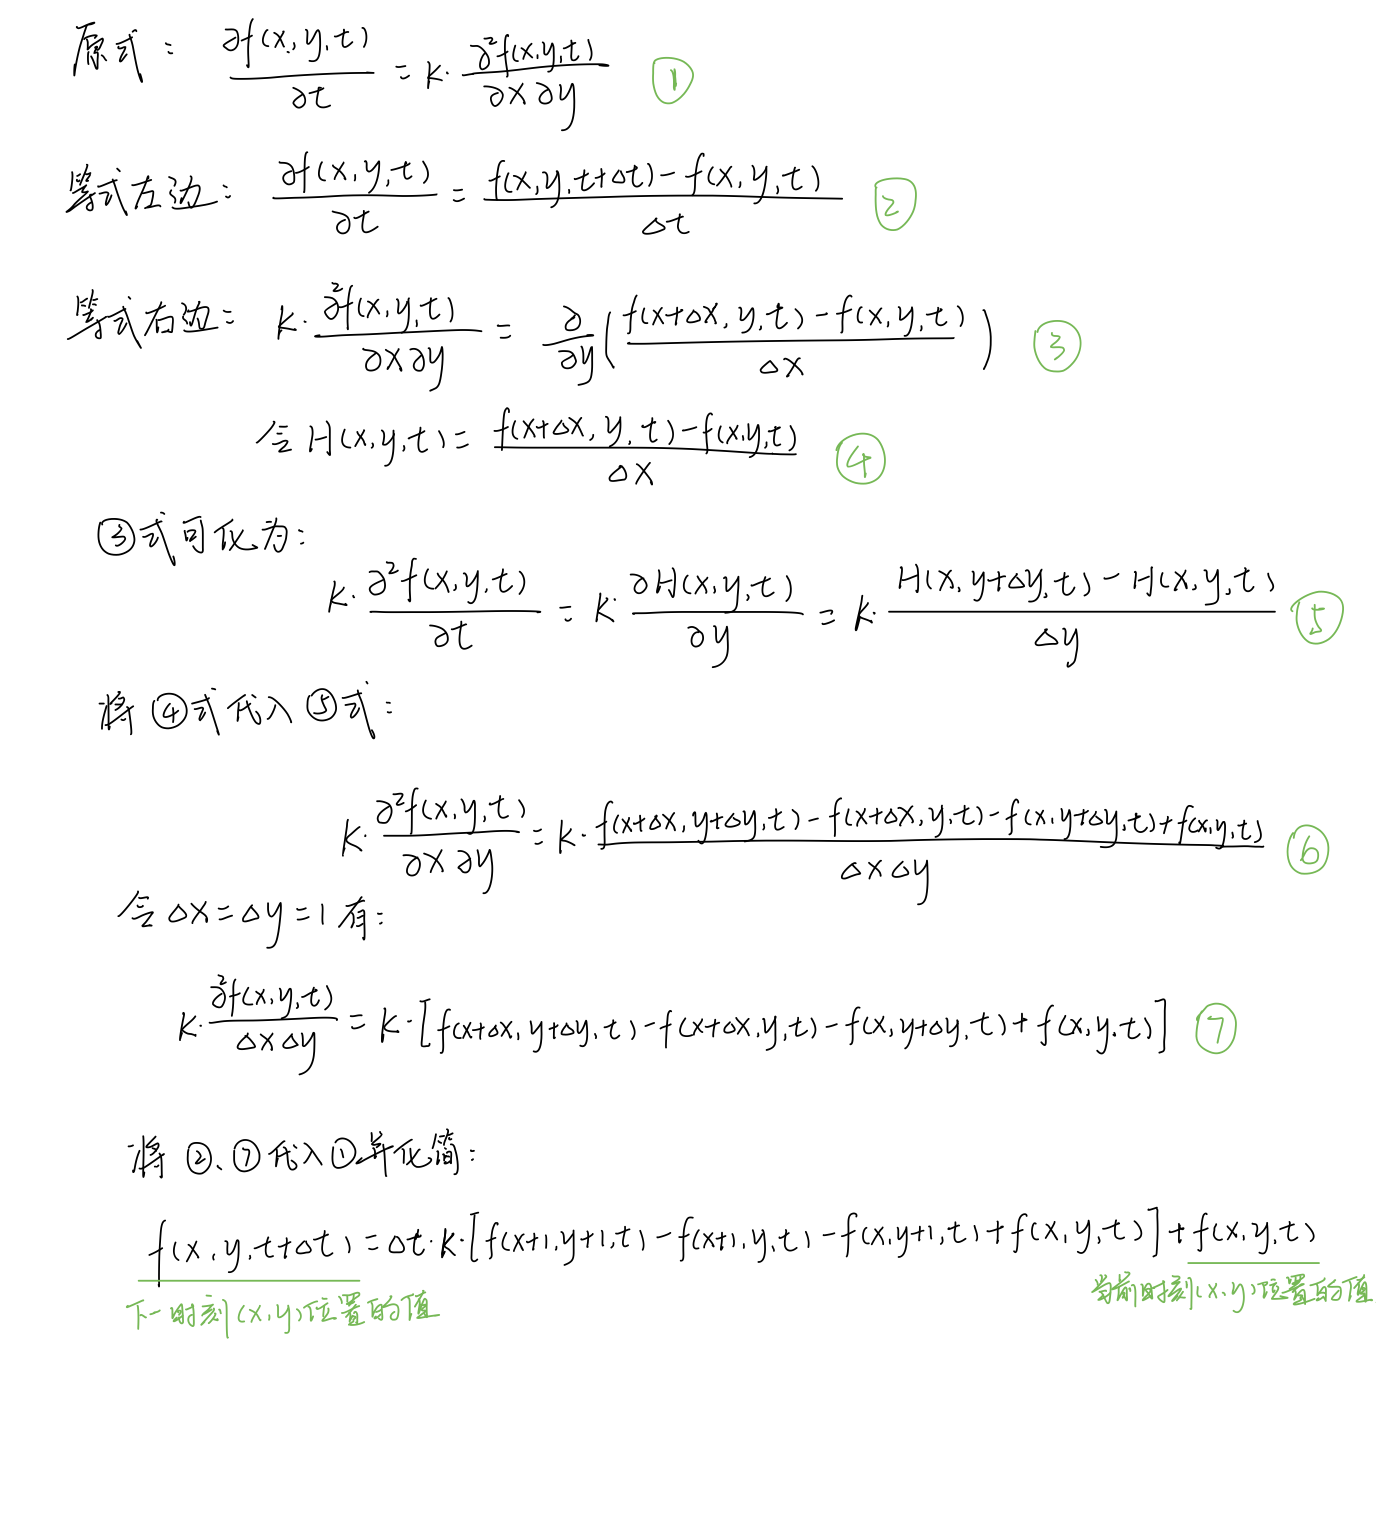 原式： ∂f(x,y,t)/∂t = k·∂²f(x,y,t)/∂x∂y ①
等式左边： ∂f(x,y,t)/∂t = (f(x,y,t+Δt)-f(x,y,t))/Δt ②
等式右边： k·∂²f(x,y,t)/∂x∂y = ∂/∂y((f(x+Δx,y,t)-f(x,y,t))/Δx) ③
令H(x,y,t)=(f(x+Δx,y,t)-f(x,y,t))/Δx ④
③式可化为：
k·∂²f(x,y,t)/∂t = k·∂H(x,y,t)/∂y = k·(H(x,y+Δy,t)-H(x,y,t))/Δy ⑤
将④式代入⑤式：
k·∂²f(x,y,t)/∂x∂y = k·(f(x+Δx,y+Δy,t)-f(x+Δx,y,t)-f(x,y+Δy,t)+f(x,y,t))/ΔxΔy ⑥
令Δx=Δy=1有：
k·∂²f(x,y,t)/ΔxΔy = k·[f(x+Δx,y+Δy,t)-f(x+Δx,y,t)-f(x,y+Δy,t)+f(x,y,t)] ⑦
将②、⑦代入①并化简：
f(x,y,t+Δt)=Δt·k·[f(x+1,y+1,t)-f(x+1,y,t)-f(x,y+1,t)+f(x,y,t)]+f(x,y,t)
下一时刻(x,y)位置的值
当前时刻(x,y)位置的值